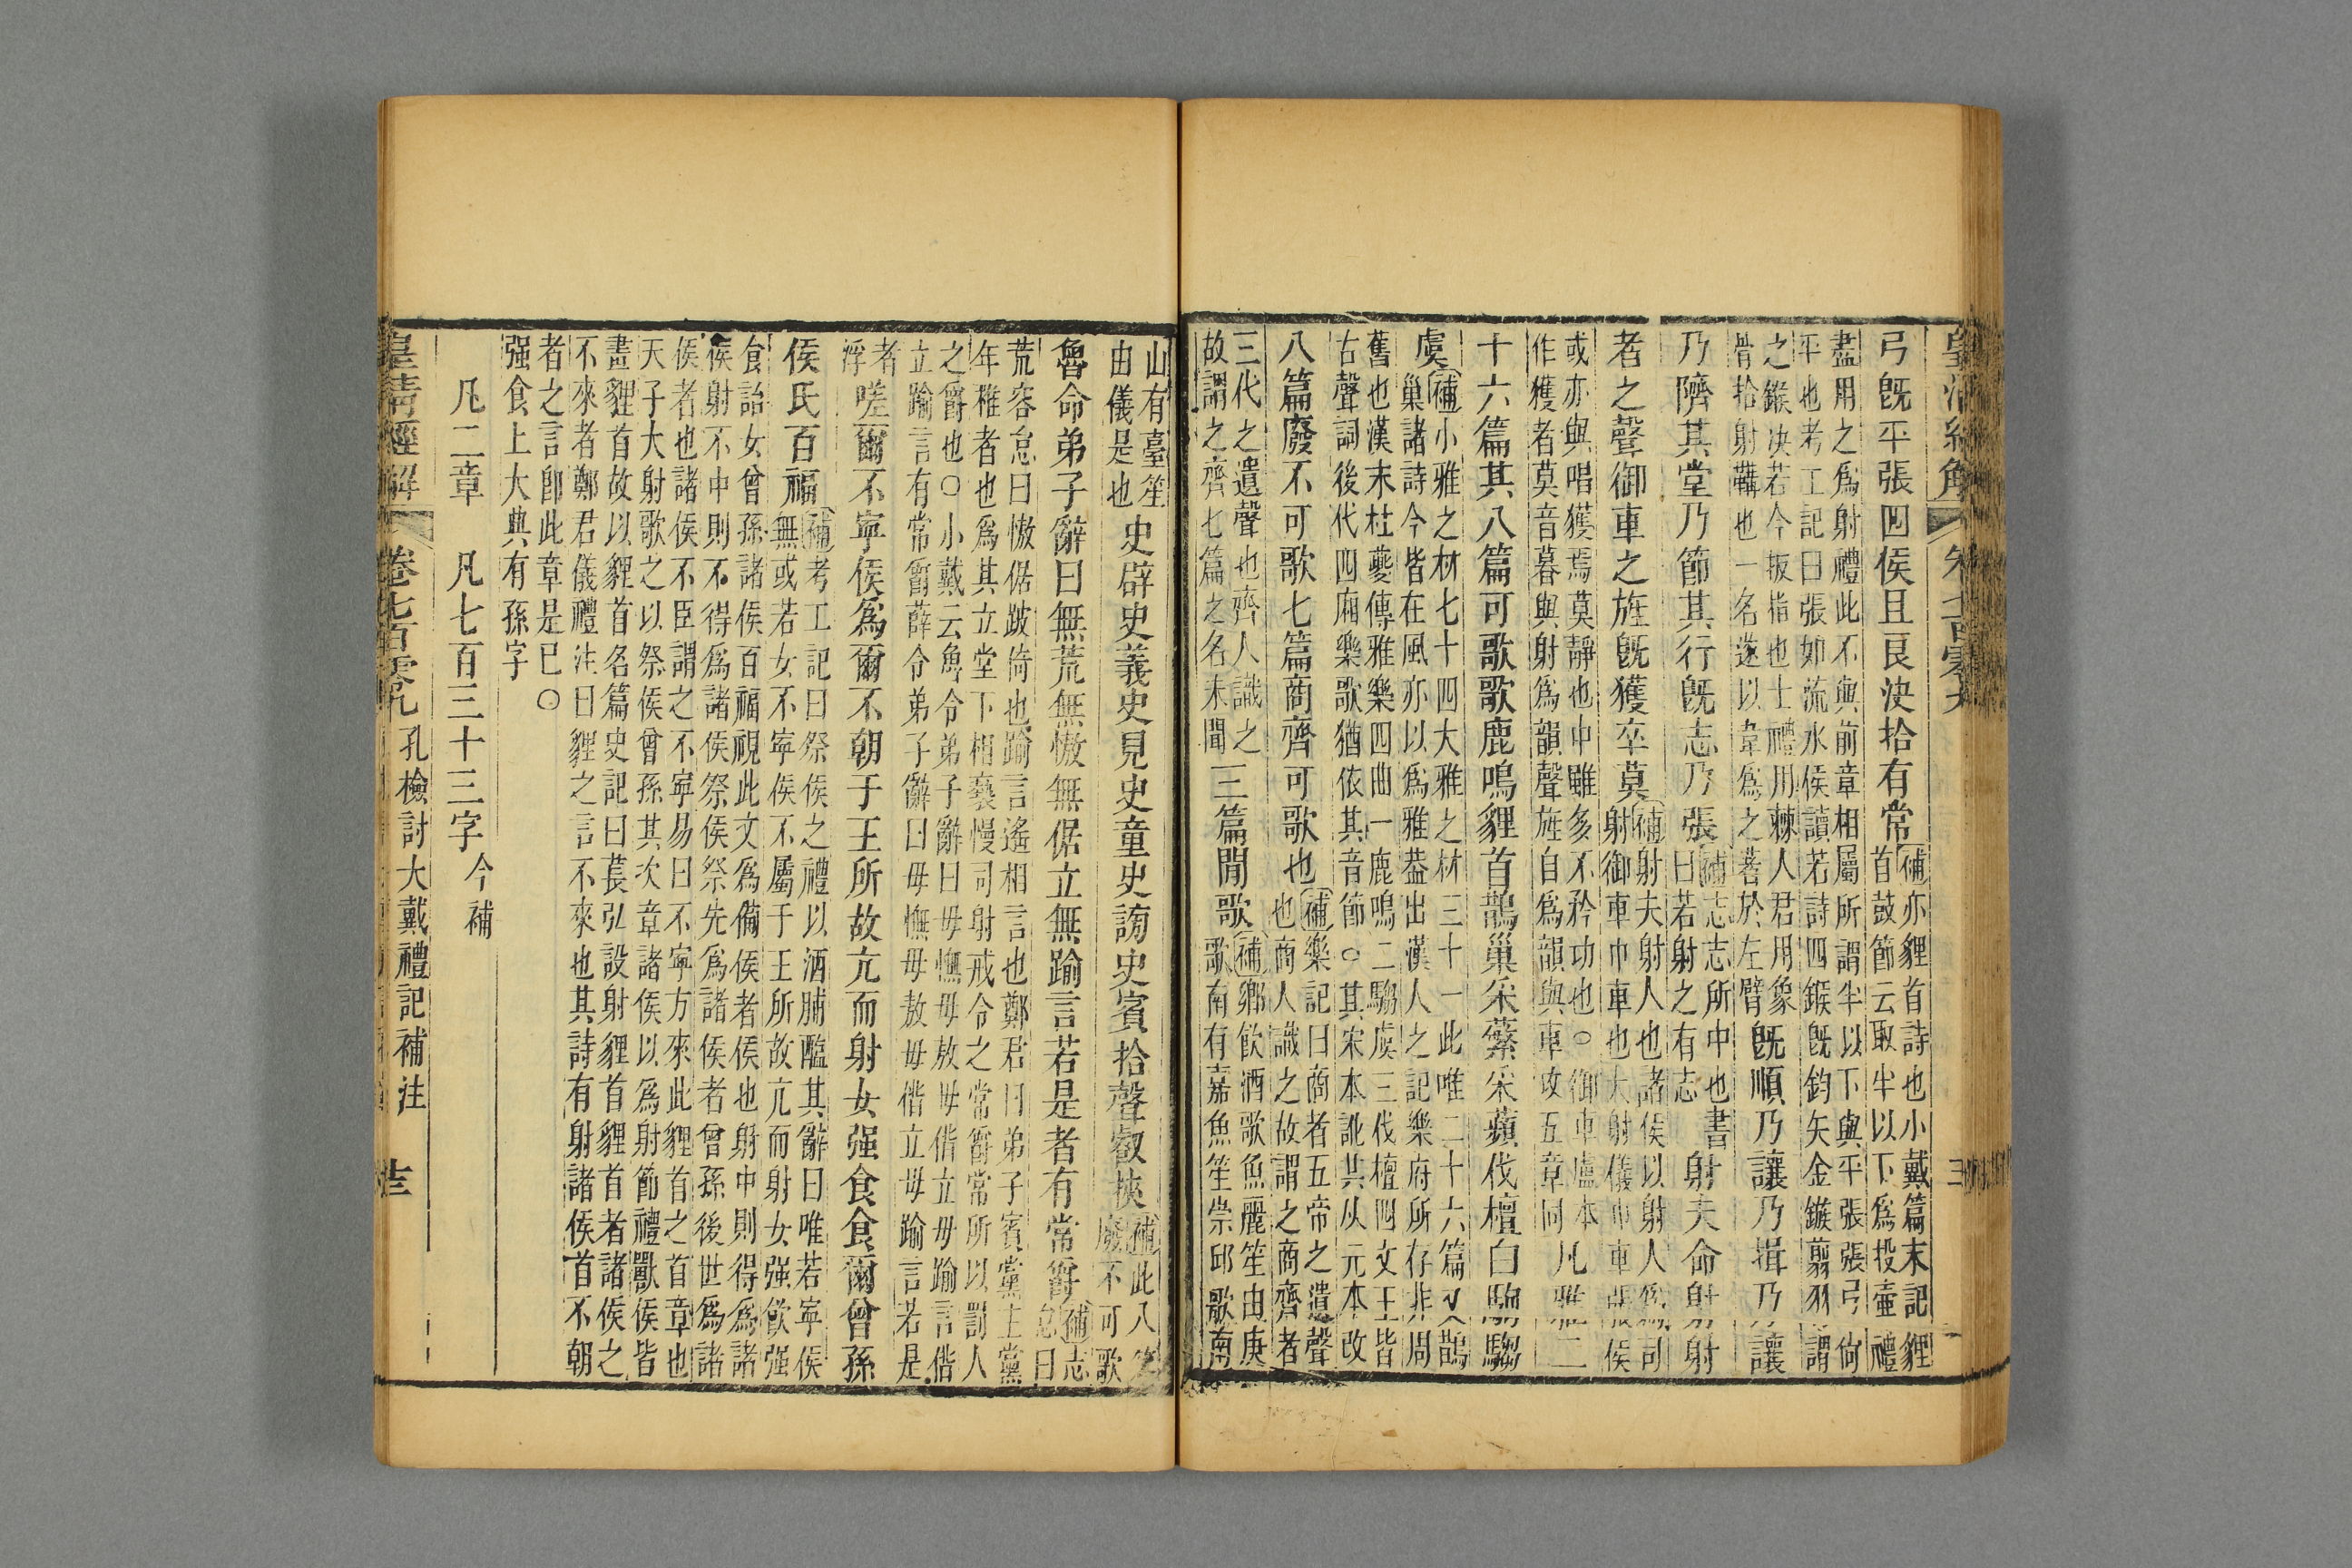 皇清經解 卷七百零九
弓旣平張四侯且良決拾有常
補亦貍首詩也小戴篇末記貍
首鼓節云取半以下爲投壺禮
盡用之爲射禮此不與前章相屬所謂半以下與平張張弓尙
平也考工記曰張如流水侯讀若詩四鍭旣鈞矢金鏃翦羽謂
之鍭決若今扳指也士禮用棘人君用象
骨拾射鞲也一名遂以韋爲之著於左臂
旣順乃讓乃揖乃讓
乃隮其堂乃節其行旣志乃張
補志志所中也書
曰若射之有志
射夫命射射
者之聲御車之旌旣獲卒莫
補射夫射人也諸侯以射人爲司
射御車巾車也大射儀巾車張侯
或亦與唱獲焉莫靜也中雖多不矜功也○御車盧本
作獲者莫音暮與射爲韻聲旌自爲韻與車攻五章同
凡雅二
十六篇其八篇可歌歌鹿鳴貍首鵲巢采蘩采蘋伐檀白駒騶
虞
補小雅之材七十四大雅之材三十一此唯二十六篇又鵲
巢諸詩今皆在風亦以爲雅葢出漢人之記樂府所存非周
舊也漢末杜夔傳雅樂四曲一鹿鳴二騶虞三伐檀四文王皆
古聲詞後代四廂樂歌猶依其音節○其宋本訛共从元本改
八篇廢不可歌七篇商齊可歌也
補樂記曰商者五帝之遺聲
也商人識之故謂之商齊者
三代之遺聲也齊人識之
故謂之齊七篇之名未聞
三篇閒歌
補鄉飮酒歌魚麗笙由庚
歌南有嘉魚笙崇邱歌南
山有臺笙
由儀是也
史辟史義史見史童史謗史賓拾聲叡挾
補此八篇
廢不可歌
魯命弟子辭曰無荒無憿無倨立無踰言若是者有常爵
補志
曰
荒容怠曰憿倨跛倚也踰言遙相言也鄭君曰弟子賓黨主黨
年稚者也爲其立堂下相褻慢司射戒令之常爵常所以罰人
之爵也○小戴云魯令弟子辭曰毋憮毋敖毋偝立毋踰言偝
立踰言有常爵薛令弟子辭曰毋憮毋敖毋偝立毋踰言若是
者
浮
嗟爾不寧侯爲爾不朝于王所故亢而射女强食食爾曾孫
侯氏百福
補考工記曰祭侯之禮以酒脯醢其辭曰唯若寧侯
無或若女不寧侯不屬于王所故亢而射女强飮强
食詒女曾孫諸侯百福視此文爲備侯者侯也射中則得爲諸
侯射不中則不得爲諸侯祭侯祭先爲諸侯者曾孫後世爲諸
侯者也諸侯不臣謂之不寧易曰不寧方來此貍首之首章也
天子大射歌之以祭侯曾孫其次章諸侯以爲射節禮獸侯皆
畫貍首故以貍首名篇史記曰萇弘設射貍首貍首者諸侯之
不來者鄭君儀禮注曰貍之言不來也其詩有射諸侯首不朝
者之言卽此章是已○
强食上大典有孫字
凡二章　凡七百三十三字今補
皇清經解 卷七百零九 孔檢討大戴禮記補注